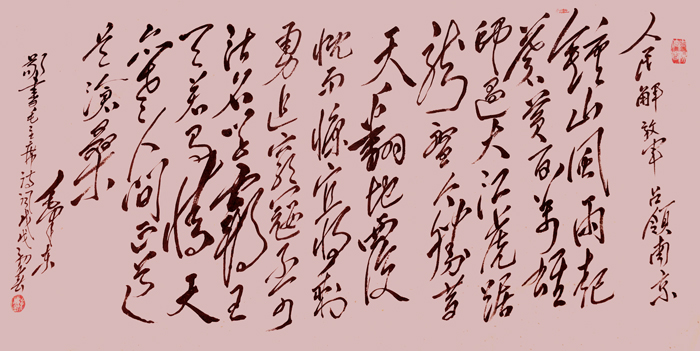 人民解放军占领南京
钟山风雨起
苍黄百万雄
师过大江虎踞
龙盘今胜昔
天翻地覆
慨而慷宜将剩
勇追穷寇不可
沽名学霸王
天若有情天
亦老人间正道
是沧桑
毛泽东
敬书毛主席诗词戊戌初春